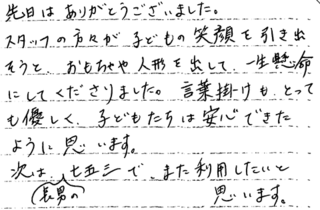 先日は ありがとうございました。
スタッフの方々が 子どもの笑顔を引き出
そうと、おもちゃや人形を出して、一生懸命
にしてくださりました。言葉掛けも、とって
も優しく、子どもたちは安心できた
ように思います。
次は、七五三で、また利用したいと
(長男の 思います。